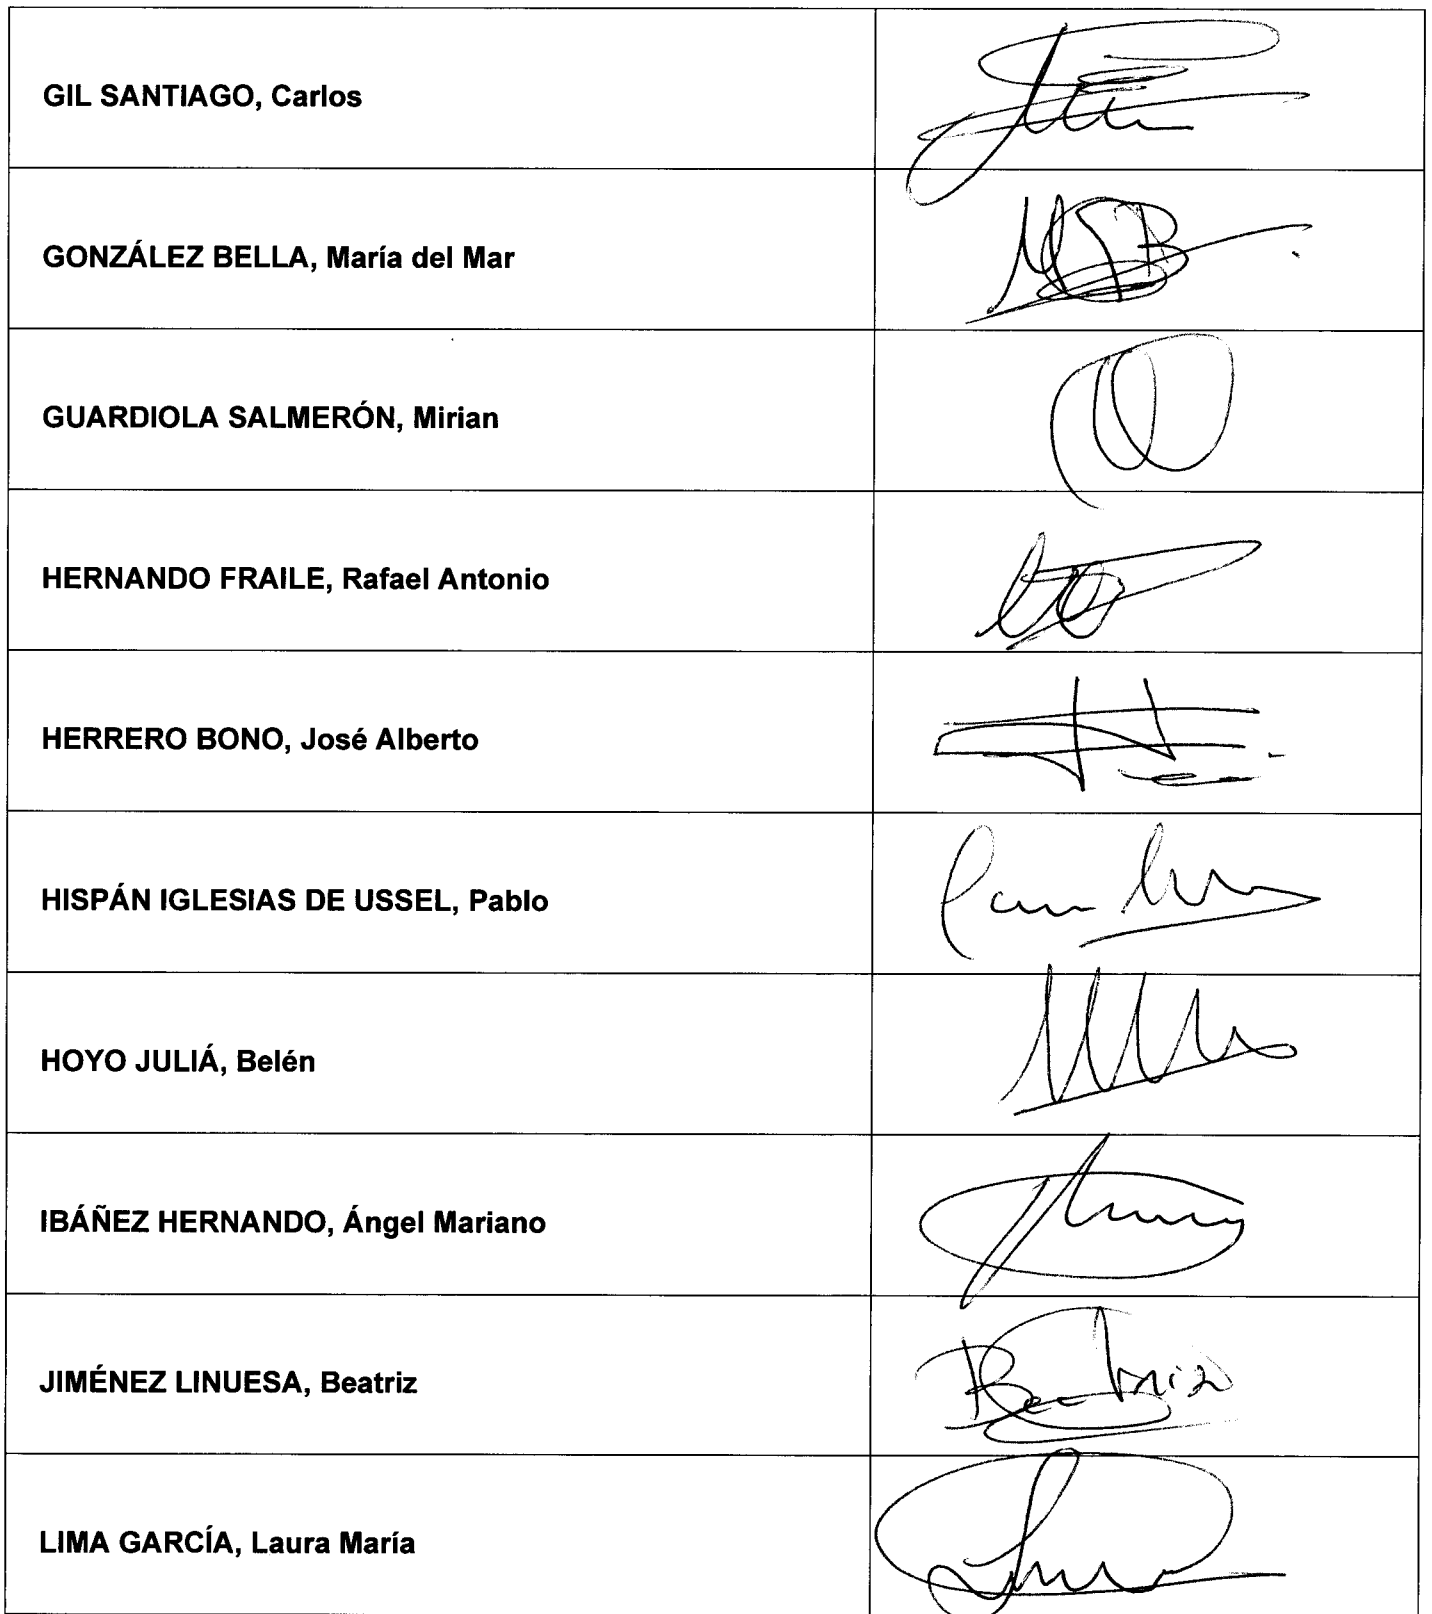 GIL SANTIAGO, Carlos
GONZÁLEZ BELLA, María del Mar
GUARDIOLA SALMERÓN, Mirian
HERNANDO FRAILE, Rafael Antonio
HERRERO BONO, José Alberto
HISPÁN IGLESIAS DE USSEL, Pablo
HOYO JULIÁ, Belén
IBÁÑEZ HERNANDO, Ángel Mariano
JIMÉNEZ LINUESA, Beatriz
Beatriz
LIMA GARCÍA, Laura María